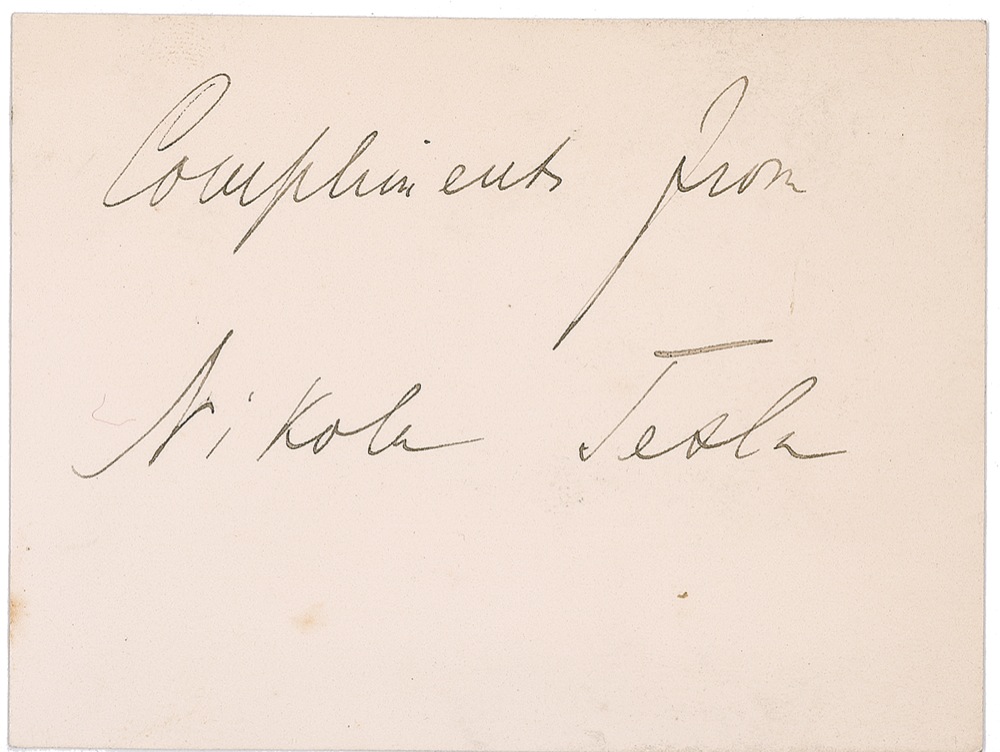 Compliments from
Nikola Tesla